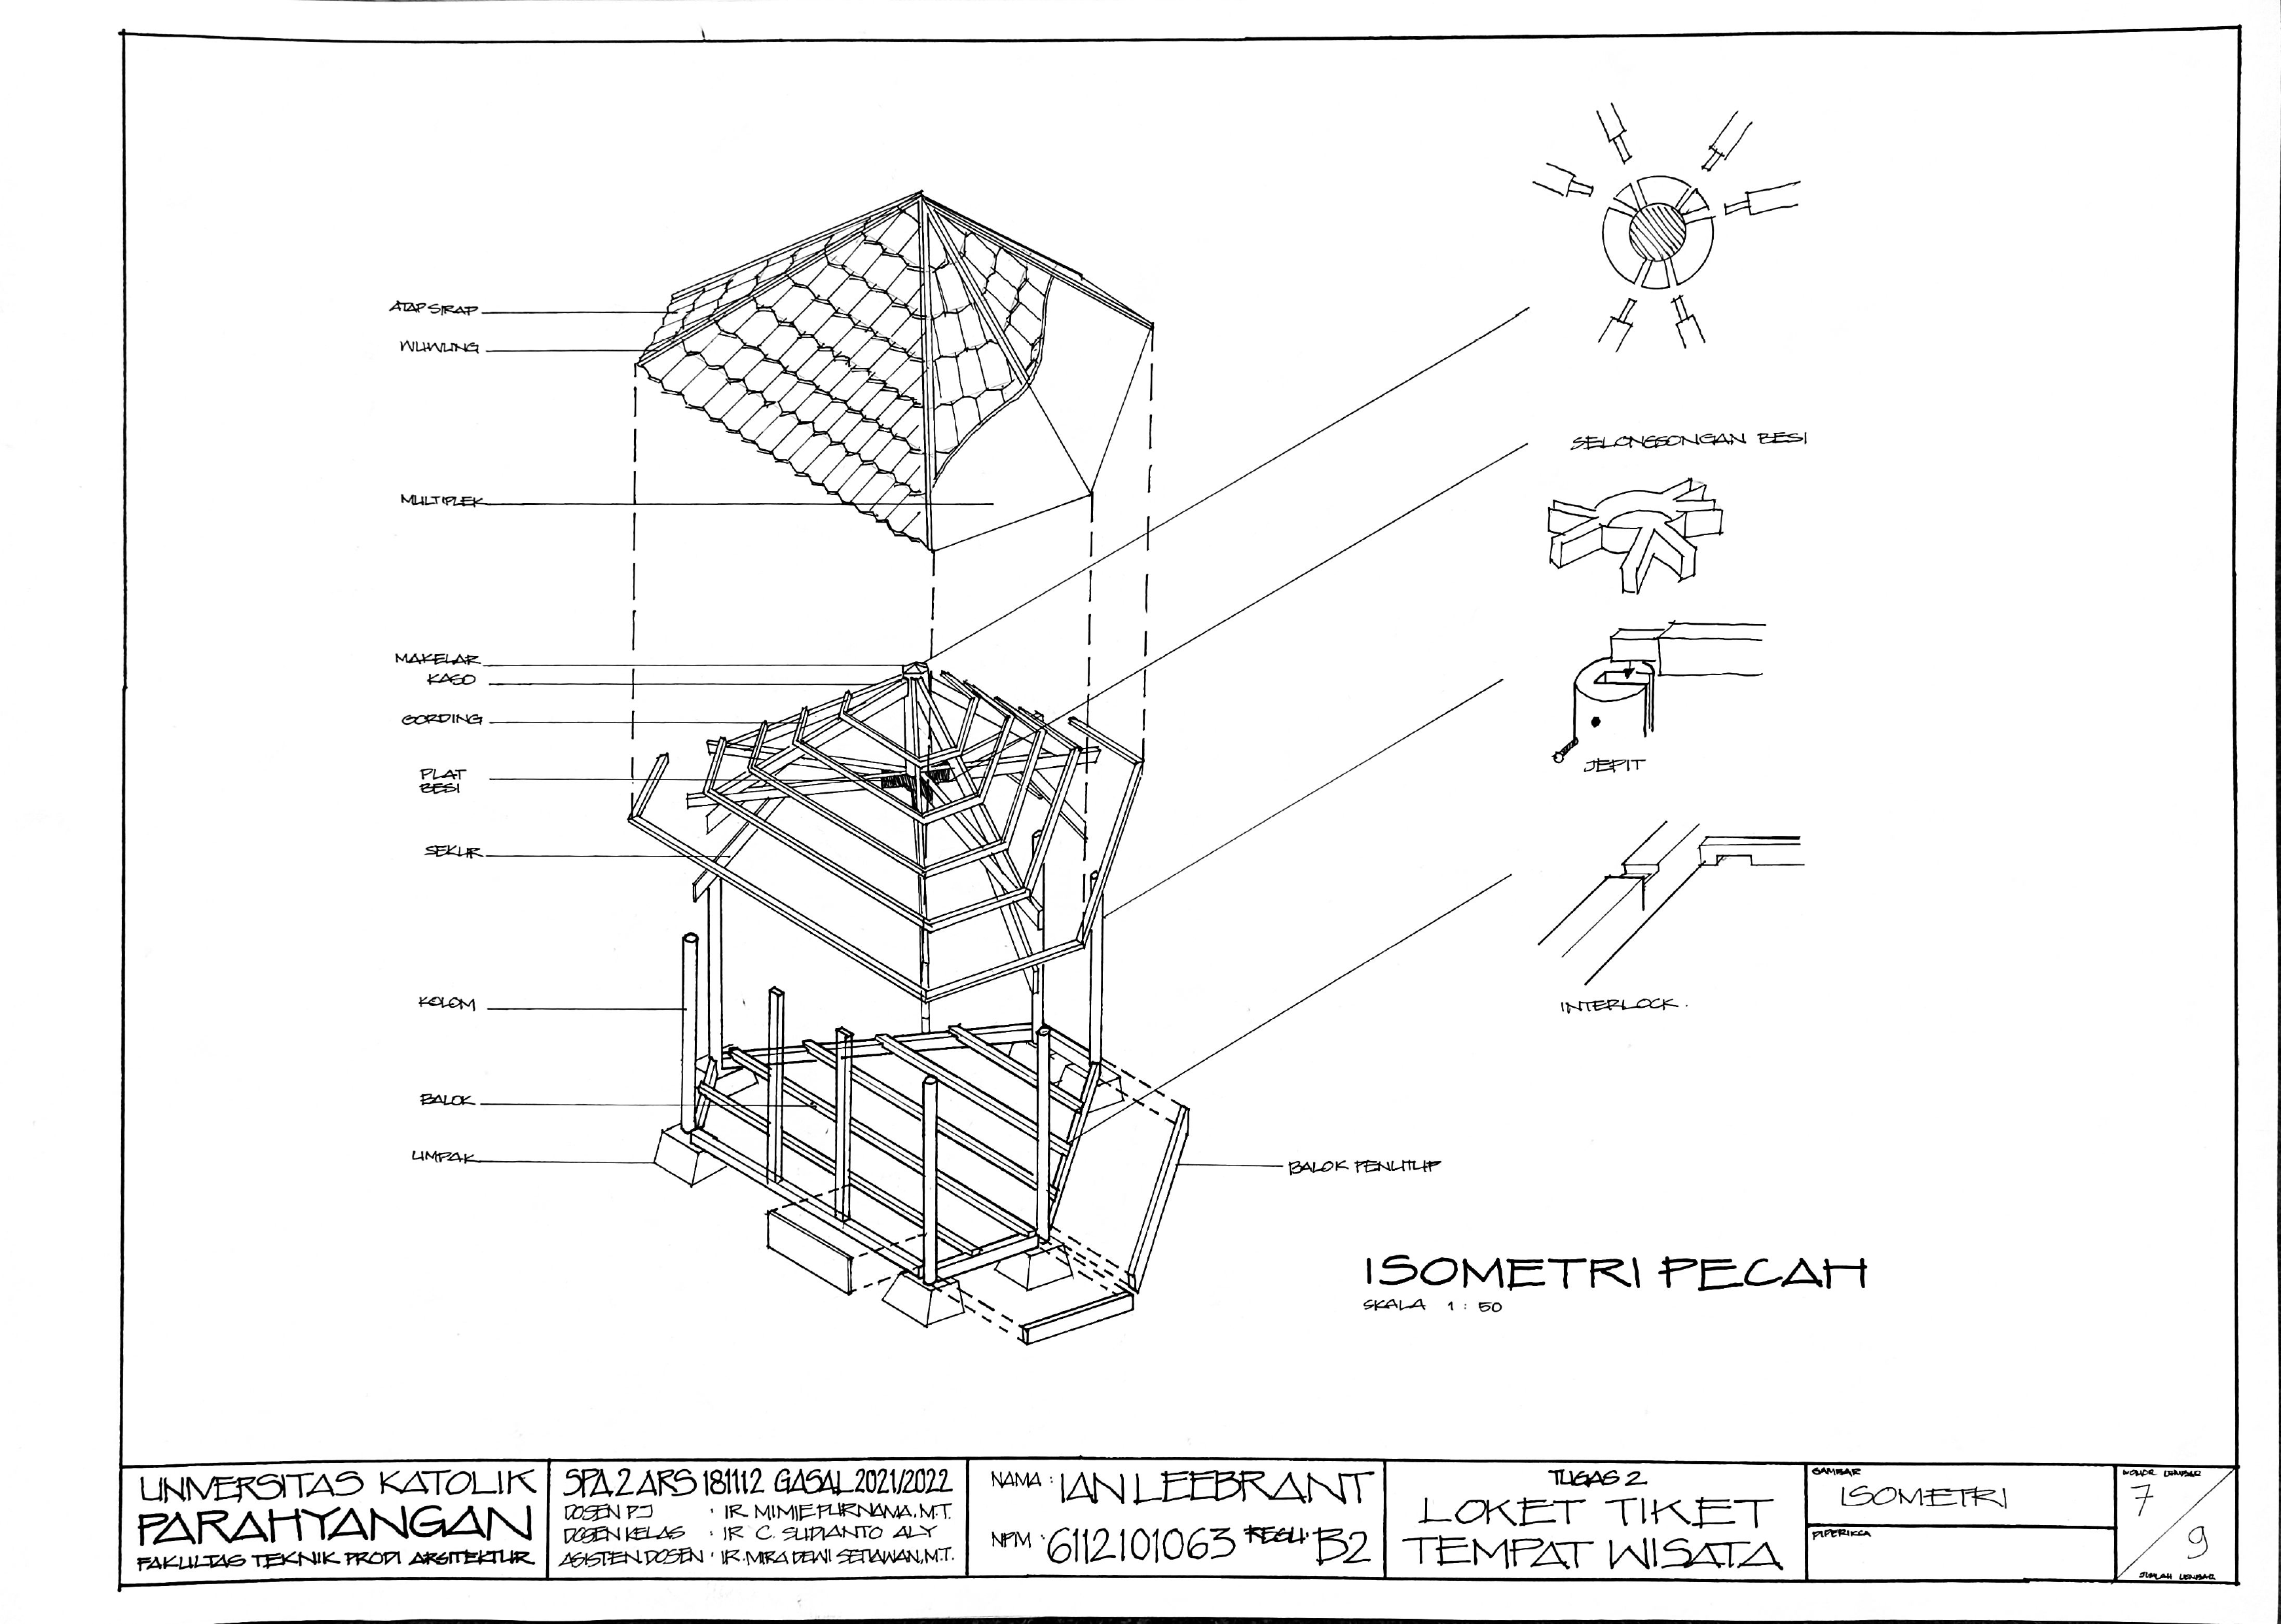 ATAP SIRAP
WUWUNG
MULTIPLEK
MAKELAR
KASO
GORDING
PLAT
BESI
SEKUR
KOLOM
BALOK
UMPAK
BALOK PENUTUP
SELONGSONGAN BESI
JEPIT
INTERLOCK.
ISOMETRI PECAH
SKALA 1 : 50
UNIVERSITAS KATOLIK
PARAHYANGAN
FAKULTAS TEKNIK PRODI ARSITEKTUR
SPA 2 ARS 181112 GASAL 2021/2022
DOSEN PJ : IR. MIMIE PURNAMA, M.T.
DOSEN KELAS : IR C. SUDIANTO ALY
ASISTEN DOSEN : IR. MIRA DEWI SETIAWAN, M.T.
NAMA : IAN LEEBRANT
NPM : 6112101063 REGU: B2
TUGAS 2
LOKET TIKET
TEMPAT WISATA
GAMBAR
ISOMETRI
DIPERIKSA
NOMOR LEMBAR
7
9
JUMLAH LEMBAR